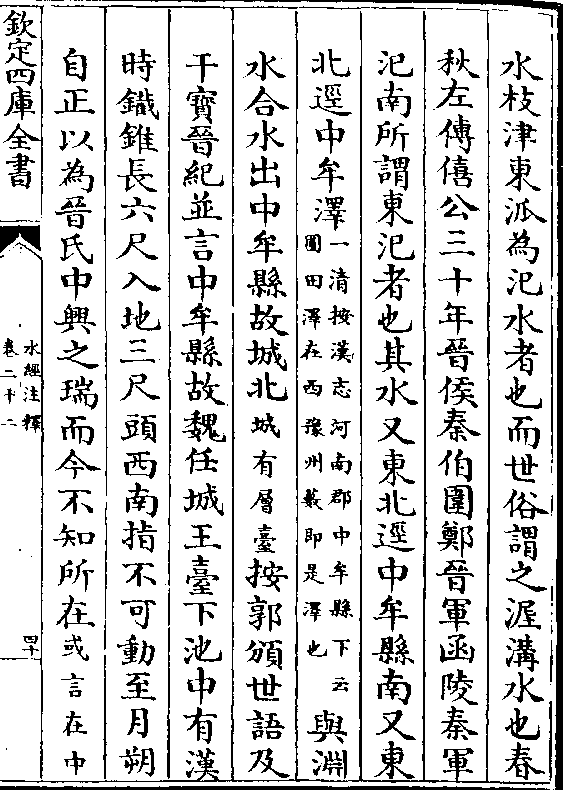 水枝津東派為汜水者也而世俗謂之渥溝水也春
秋左傳僖公三十年晉侯秦伯圍鄭晉軍函陵秦軍
汜南所謂東汜者也其水又東北逕中牟縣南又東
北逕中牟澤一清按漢志河南郡中牟縣下云圃田澤在西豫州藪即是澤也與淵
水合水出中牟縣故城北城有層臺按郭頒世語及
干寶晉紀並言中牟縣故魏任城王臺下池中有漢
時鐵錐長六尺入地三尺頭西南指不可動至月朔
自正以為晉氏中興之瑞而今不知所在或言在中
欽定四庫全書
水經注釋
卷二十二
四十